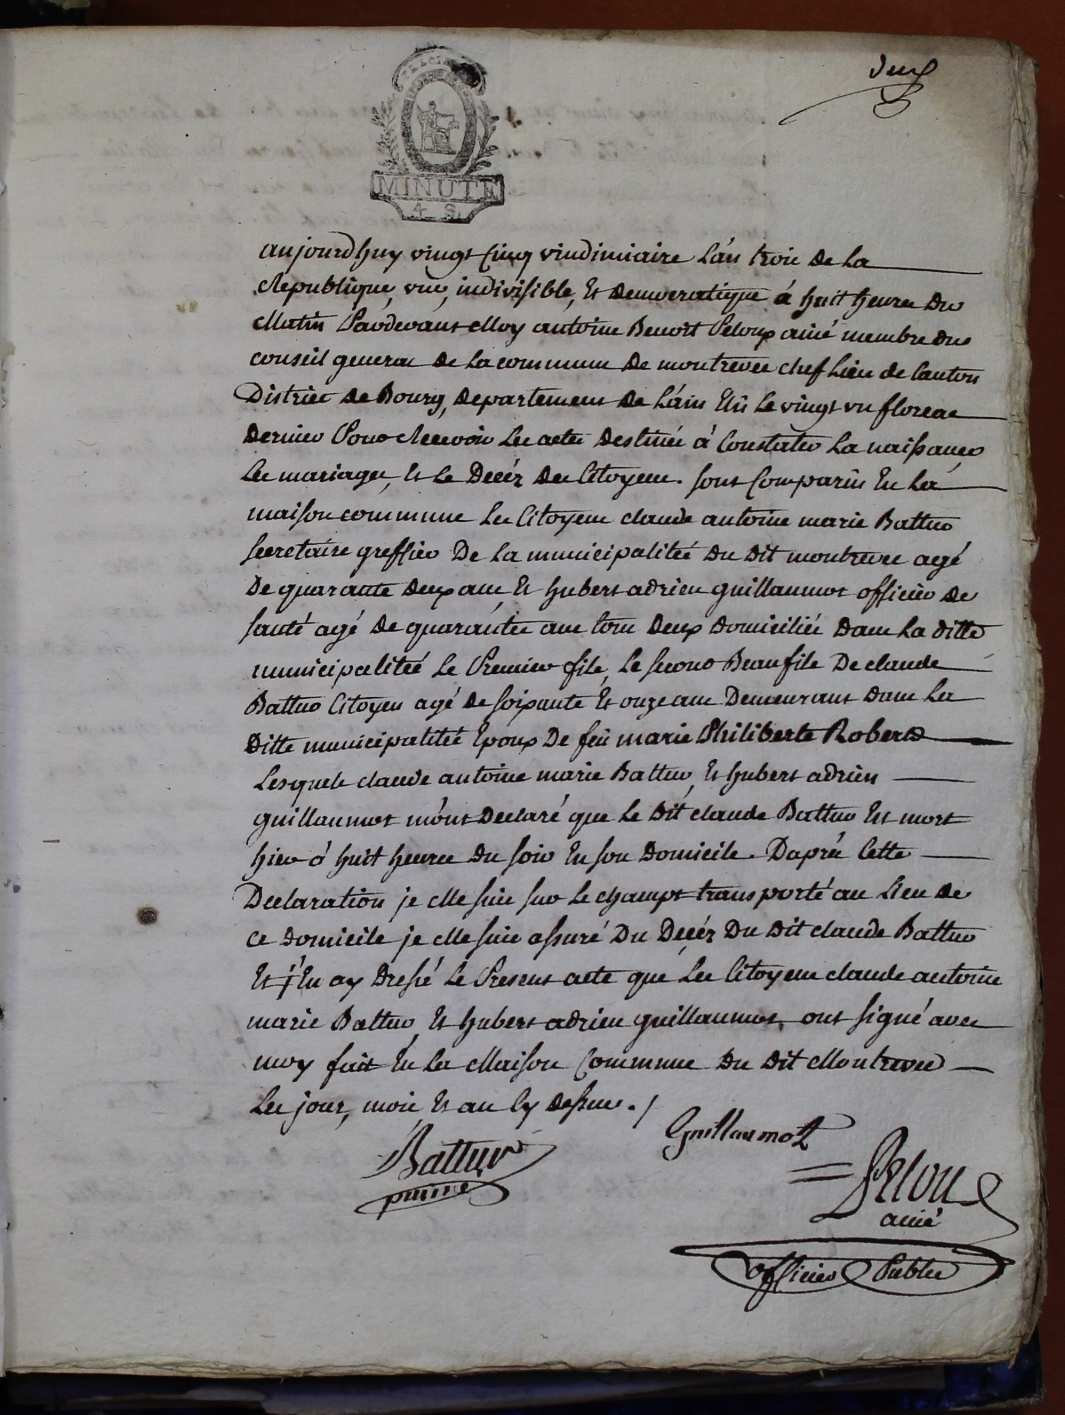 deux
MINUTE
4 S.
aujourdhuy vingt cinq vindimiaire L'an troie de La
Republique, une, indivisible, Et democratique á huit heures du
Matin Pardevant Moy antoine Benoit Peloux ainé membre du
conseil general de La commune de montrevee chef Lieu de Canton
District de Bourg, departement de L'ain Elû Le vingt un floreal
dernier Pour Recevoir Les actes destinés à Constater La naissance,
Les mariages, Et Le Decéz des Citoyens. sont Comparûs En La
maison commune Les Citoyens claude antoine marie Battur
secretaire greffier De La municipalitée du dit montrevee agé
De quarante deux ans, Et hubert adrien guillaumot officier de
santé agé de quarantes ans tous deux domiciliés dans La ditte
municipalitée Le Premier fils, Le second Beaufils De claude
Battur Citoyen agé de soixante Et onze ans Demeurant dans La
ditte municipalitée Epoux De feû marie Philiberte Roberd
Lesquels claude antoine marie Battur, Et hubert adrien
guillaumot m'ont Declaré que Le dit claude Battur Est mort
hier á huit heures du soir En son domicile. D'aprés Cette
Declaration je Me suis sur Le champt transporté au Lieu de
ce domicile je Me suis assuré Du Decéz Du dit claude Battur
Et j'En ay dressé Le Present acte que Les Citoyens claude antoine
marie Battur, Et hubert adrien guillaumot, ont signé avec
moy fait En La Maison Commune Du dit Montrevee
Les jour, mois Et an Cy dessus ./
Guillaumot
Battur
Pelou
ainé
officier Public